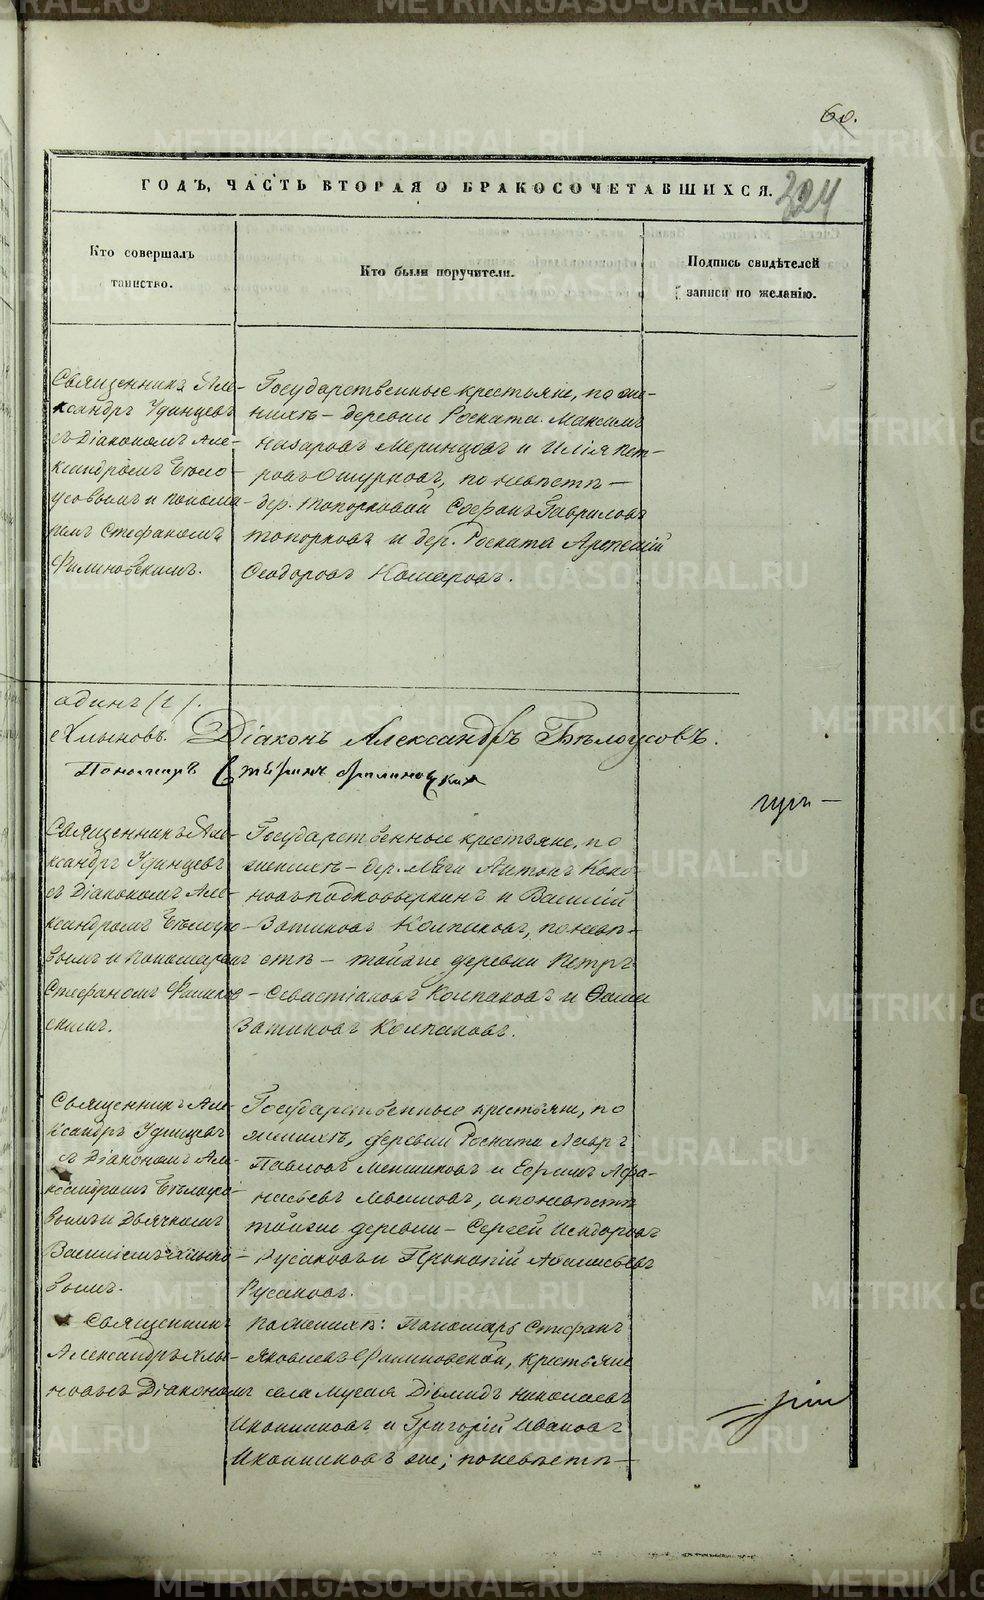 60.
ГОДЪ, ЧАСТЬ ВТОРАЯ О БРАКОСОЧЕТАВШИХСЯ.
324
Кто совершалъ
таинство.
Кто были поручители.
Подпись свидѣтелей
записи по желанію.
Священникъ Але-
ксандръ Удинцевъ
съ Діакономъ Але-
ксандромъ Бѣло-
усовымъ и понома-
ремъ Стефаномъ
Филиновскимъ.
Государственные крестьяне, по же-
нихѣ – деревни Роската Максимъ
Назаровъ Меринцовъ и Илія Пет-
ровъ Ошурковъ, по невѣстѣ –
дер. Топорковой Софонъ Гавриловъ
Топорковъ и дер. Роската Арсеній
Ѳеодоровъ Комаровъ.
одинъ (1).
Хлыновъ. Діаконъ Александръ Бѣлоусовъ.
Пономарь Стефанъ Филиновскій
Священникъ Але-
ксандръ Удинцевъ
съ Діакономъ Але-
ксандромъ Бѣлоусо-
вымъ и Пономаремъ
Стефаномъ Филинов-
скимъ.
Государственные крестьяне, по
женихѣ – дер. Антонъ
новъ Подковыркинъ и Василій
Зотиковъ Колпаковъ, по невѣ-
стѣ – тойже деревни Петръ
Севастіановъ Колпаковъ и Ѳома
Зотиковъ Колпаковъ.
Священникъ Але-
ксандръ Удинцевъ
съ Діакономъ Але-
ксандромъ Бѣлоусо-
вымъ и Дьячкомъ
Василіемъ Хлыно-
вымъ.
Государственные крестьяне, по
женихѣ, деревни Роската Лавръ
Павловъ Меншиковъ и Ефримъ Афа-
насьевъ а по невѣстѣ
тойже деревни – Сергей Исидоровъ
Русаковъ и Прокопій Аѳанасьевъ
Русаковъ.
Священникъ
Александръ Хлы-
новъ съ Діакономъ
По женихѣ: Пономарь Стефанъ
Яковлевъ Филиновской, крестьяне
села Мусая Діомидъ Николаевъ
Иконниковъ и Григорій Ивановъ
Иконниковъ же; по невѣстѣ –